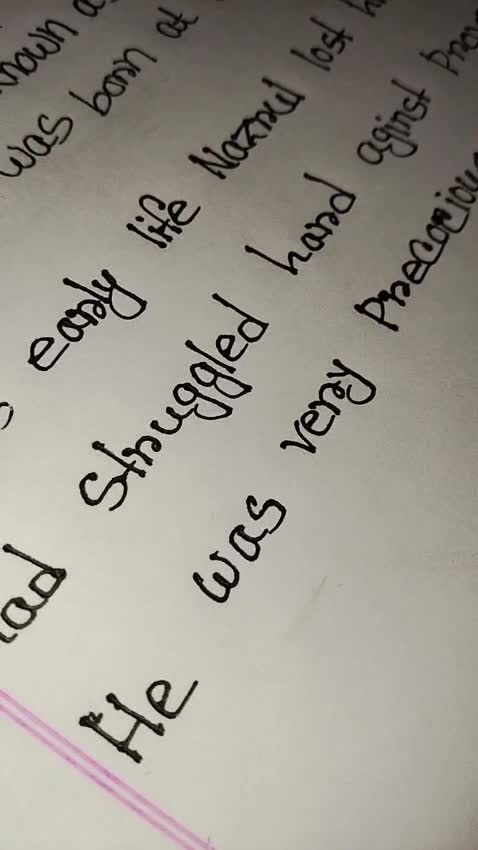 known a
was born at
early life Nazrul lost h
ad struggled hard aginst Prov
He was very Precociou